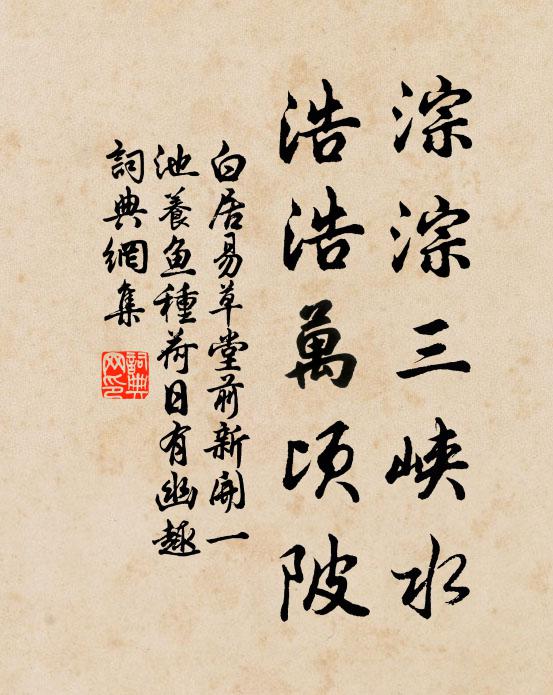 淙淙三峽水
浩浩萬頃陂
白居易草堂前新開一
池養魚種荷日有幽趣
詞典網集
詞典
网印